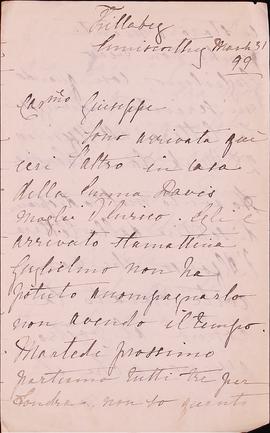 Enniscorthy March 31
99
Carmo Giuseppe
Sono arrivata qui
ieri l'altro in casa
della Emma Davis
moglie d'Enrico. Egli è
arrivato stamattina
Guglielmo non ha
potuto accompagnarlo
non avendo il tempo.
Martedì prossimo
partiamo tutti tre per
Londra. non so quanti